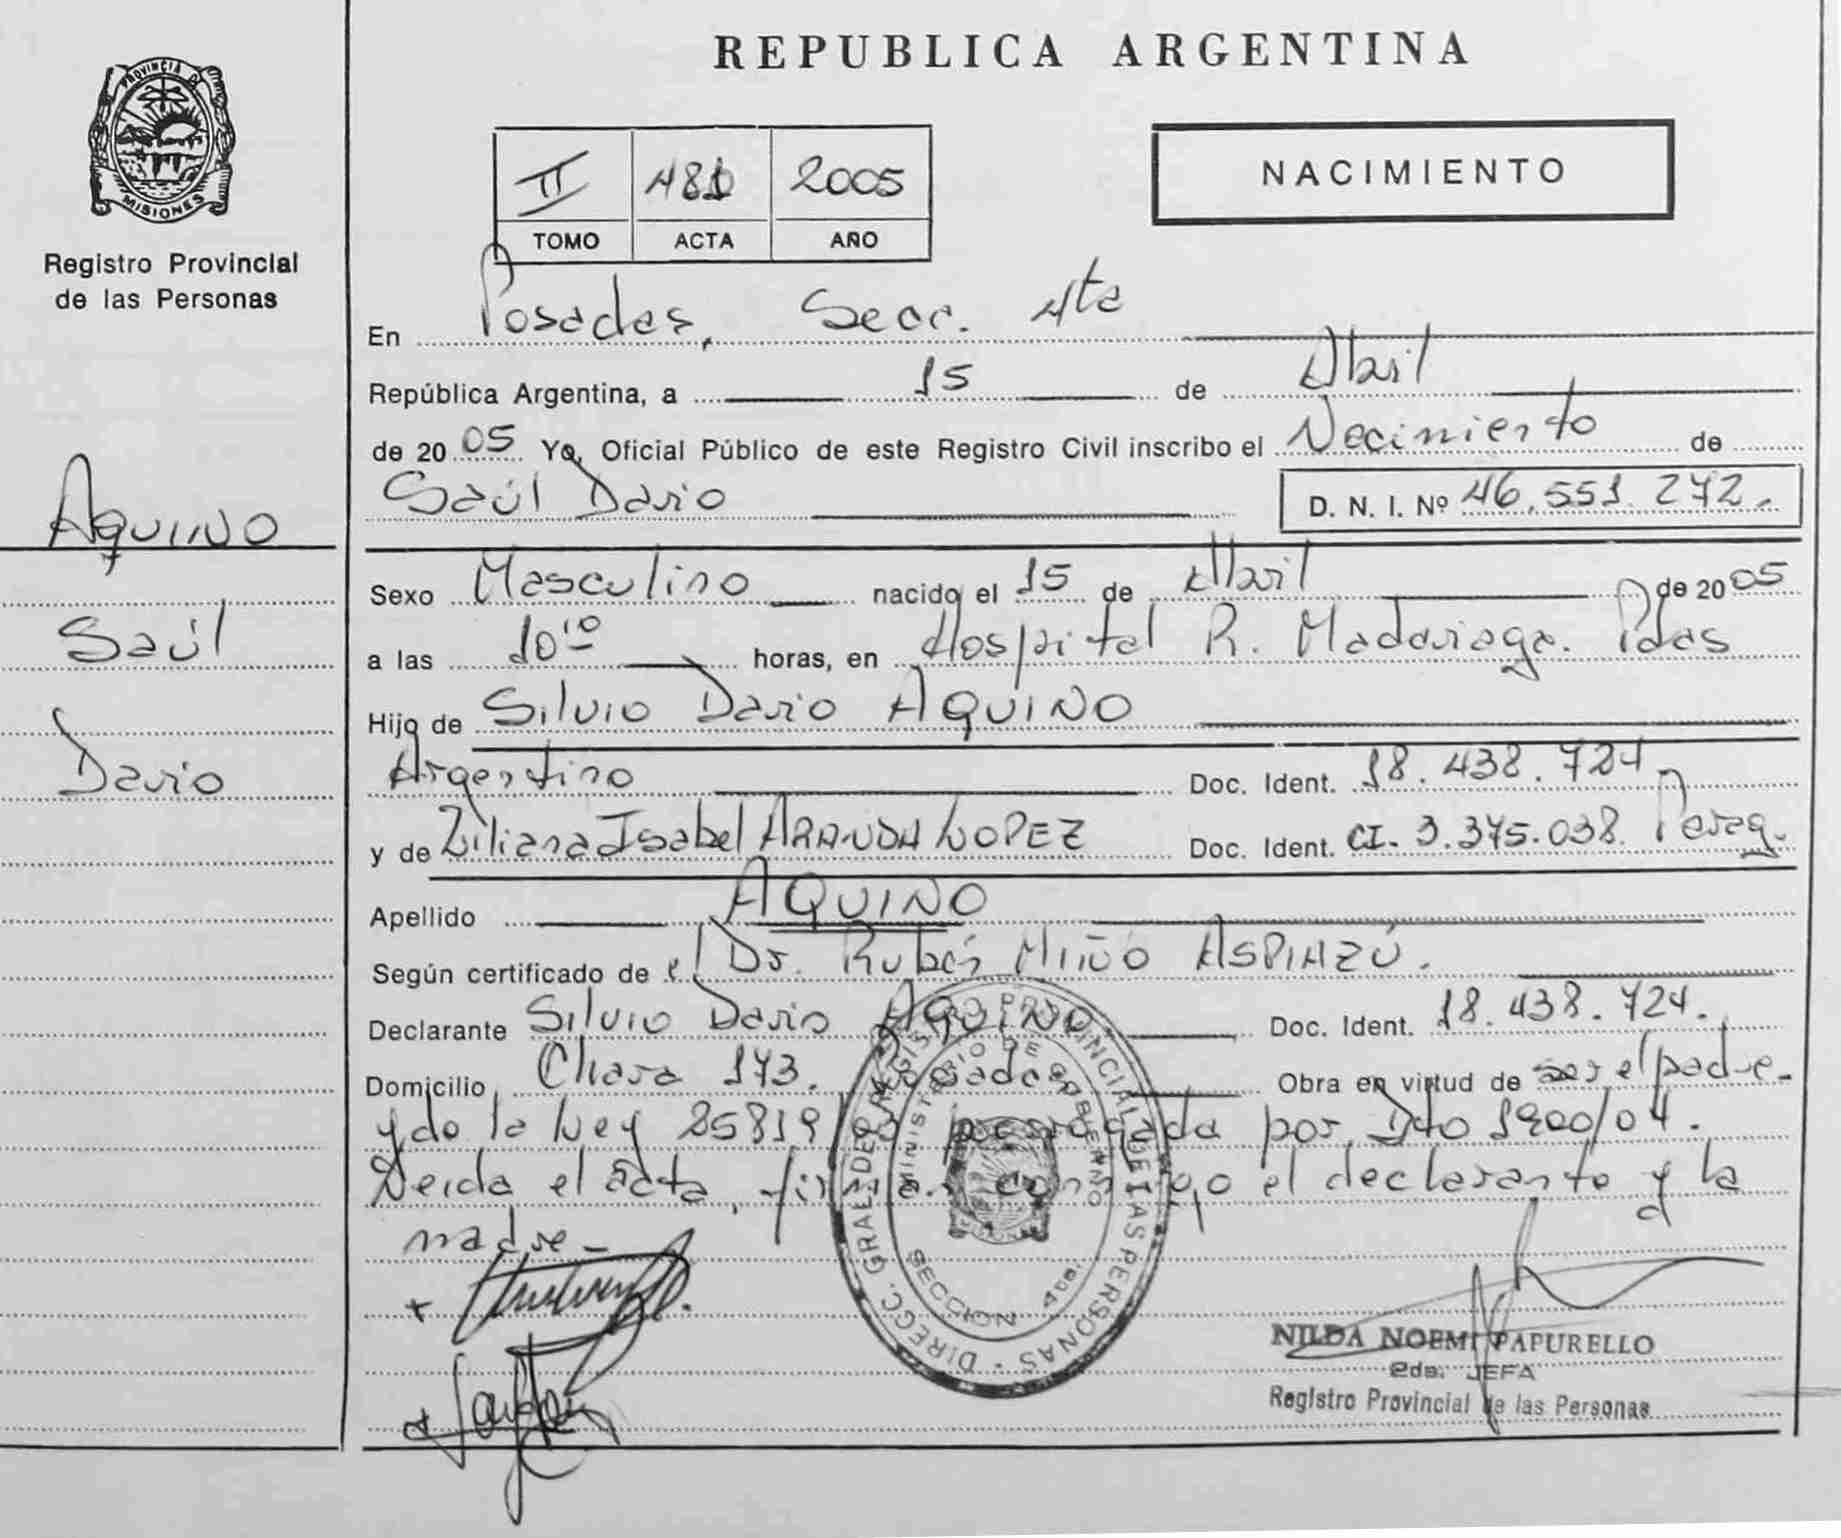 REPUBLICA ARGENTINA
PROVINCIA DE
MISIONES
Registro Provincial
de las Personas
NACIMIENTO
II 2005
TOMO ACTA AÑO
En Posadas, Secc. 4ta
República Argentina, a 15 de Abril
de 2005 Yo, Oficial Público de este Registro Civil inscribo el Nacimiento de
Saúl Dario D. N. I. Nº 46.551.272.
AQUINO
Saúl
Dario
Sexo Masculino nacido el 15 de Abril de 2005
a las 10¹⁰ horas, en Hospital R. Madariaga. Pdas
Hijo de Silvio Dario AQUINO
Argentino Doc. Ident. 18.438.724
y de Liliana Isabel ARANDA LOPEZ Doc. Ident. CI. 3.375.038 Parag.
Apellido AQUINO
Según certificado de el Dr. Rubén Miño ASPIAZÚ.
Declarante Silvio Dario AQUINO Doc. Ident. 18.438.724.
Domicilio Chara 173. Posadas Obra en virtud de ser el padre
y de la Ley 25819 prorrogada por Dto 1900/04.
Leida el acta, firman conmigo el declarante y la
madre
DIRECC. GRAL. DEL REGISTRO PROVINCIAL DE LAS PERSONAS
MINISTERIO DE GOBIERNO
SECCION 4ta.
NILDA NOEMI PAPURELLO
2da. JEFA
Registro Provincial de las Personas